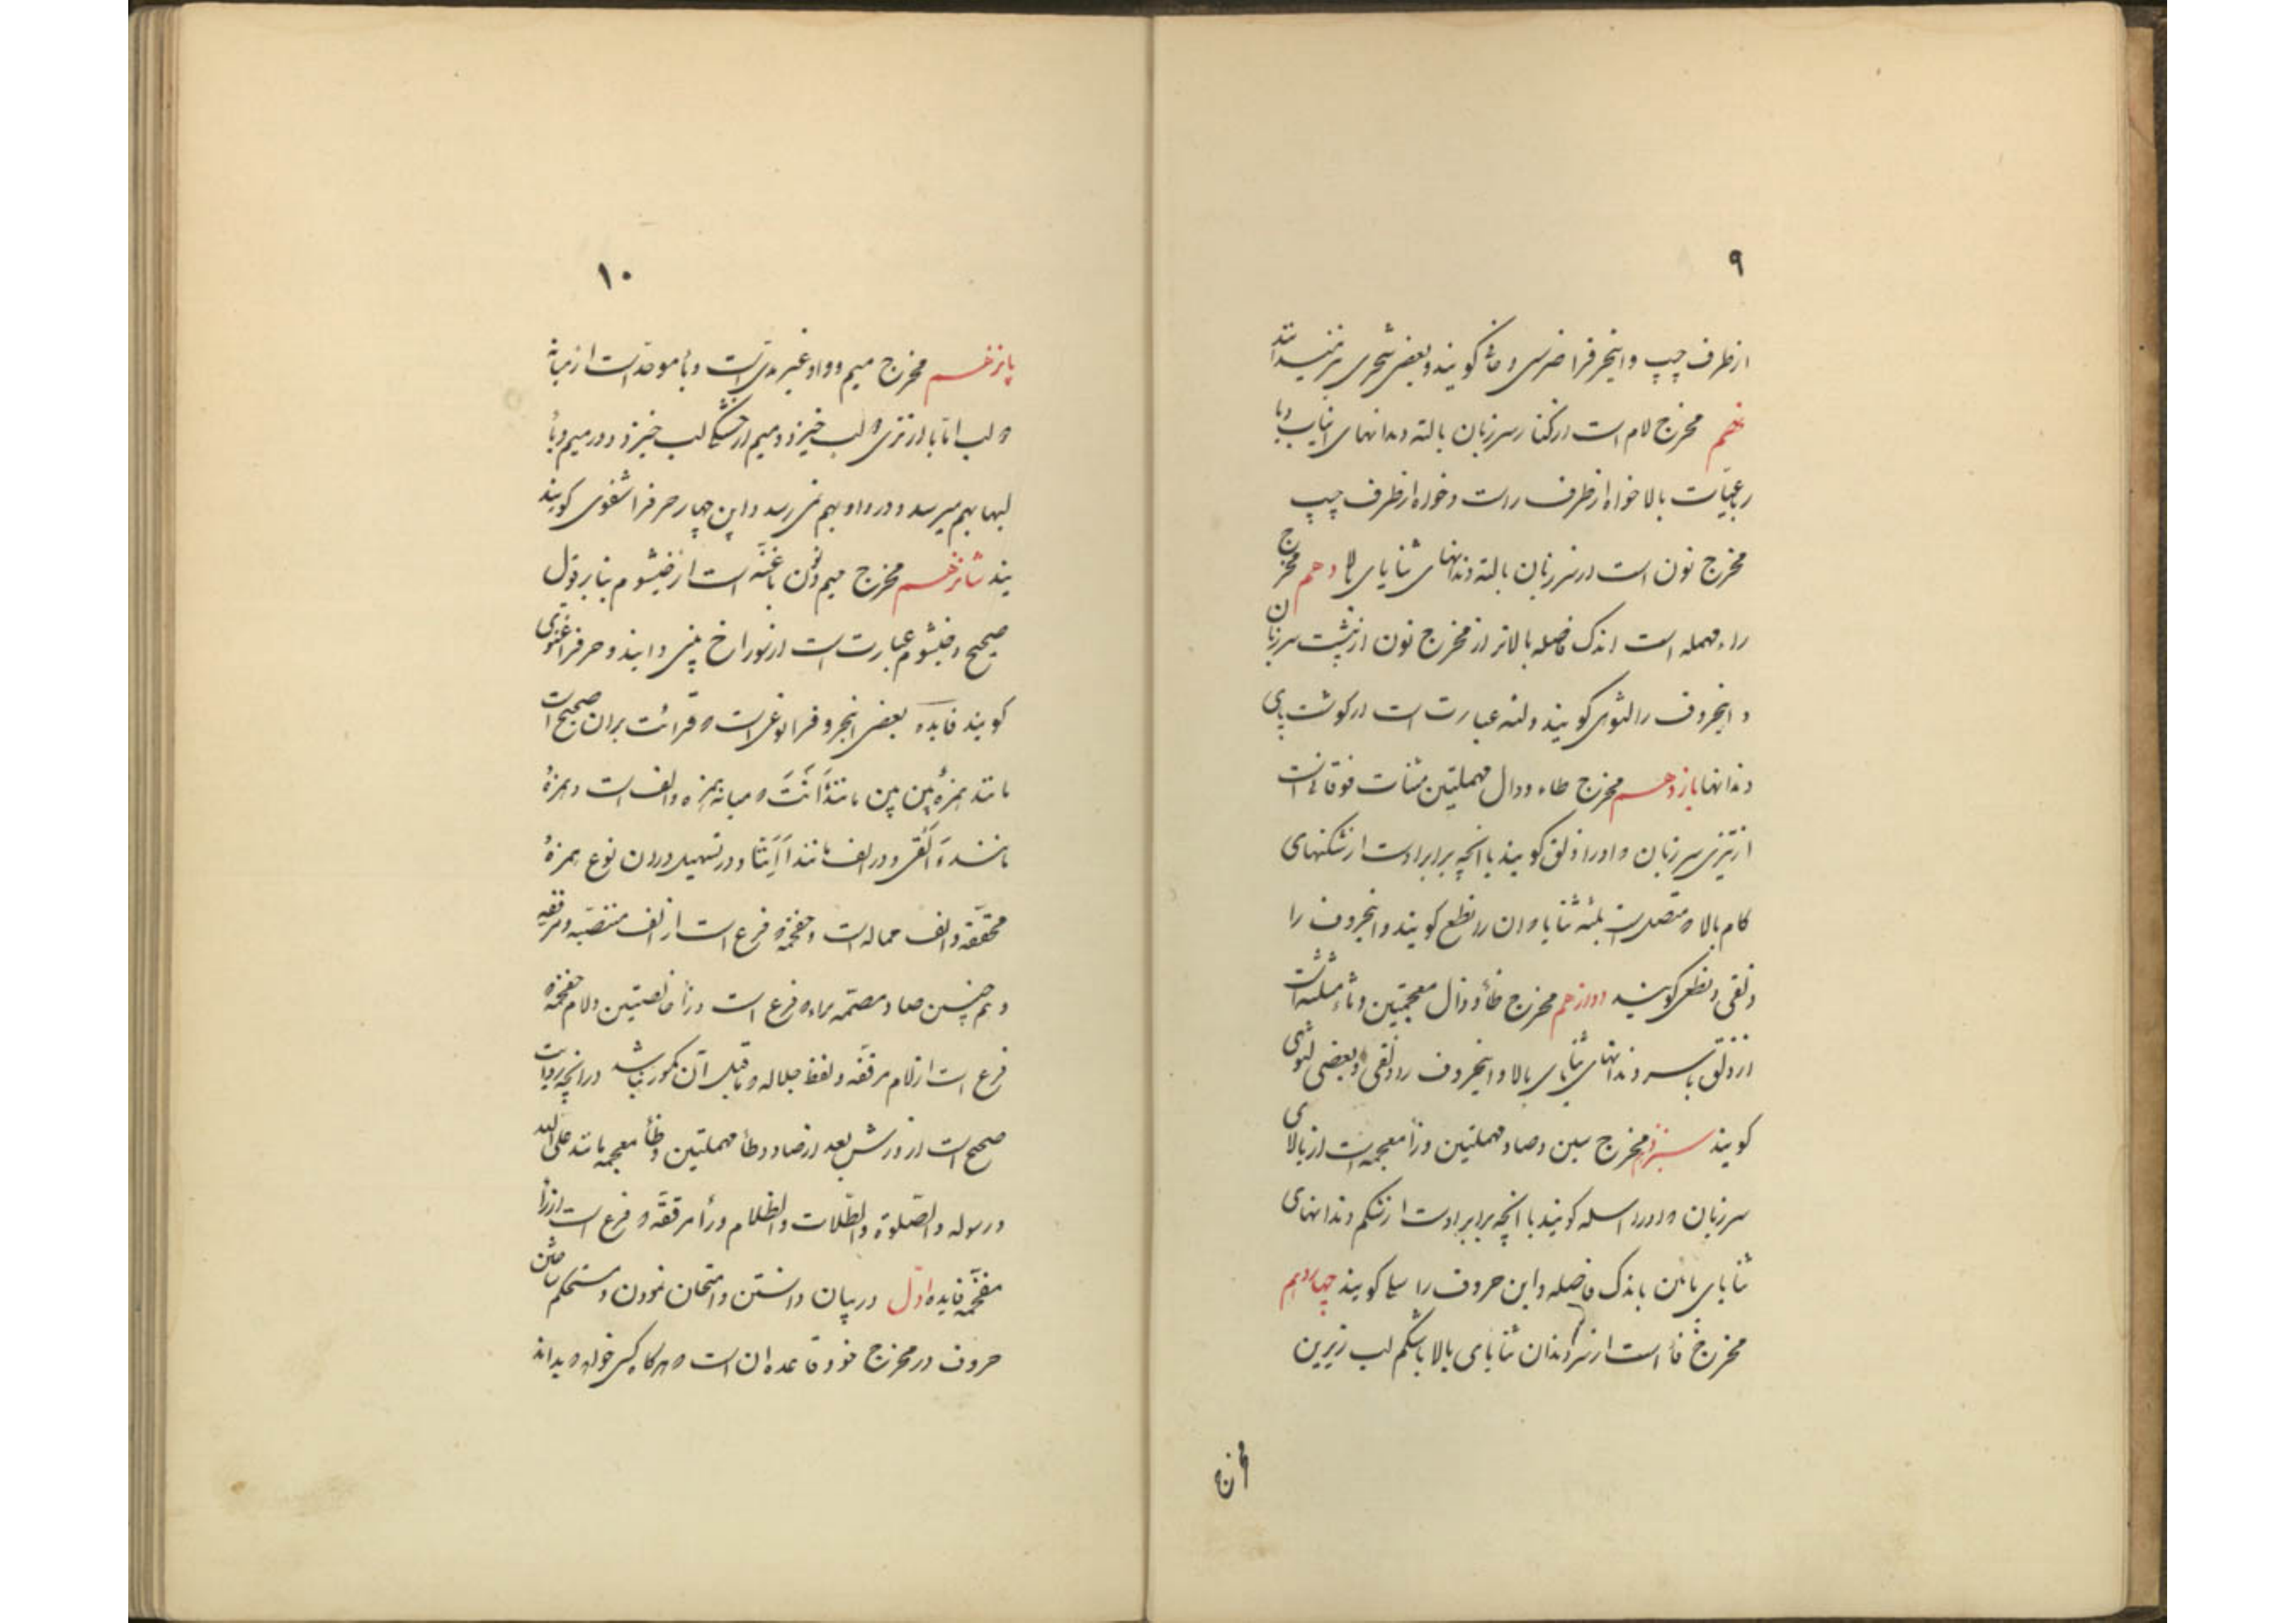 ۹
از طرف چپ و اینحرفرا ضرسی و حافی گویند و بعضی شجری نیز میدانند
نهم مخرج لام است از کنار سر زبان با لثه دندانهای انیاب و با
رباعیات بالا خواه از طرف راست و خواه از طرف چپ
مخرج نون است از سر زبان با لثه دندانهای ثنایای بالا دهم مخرج
راء مهمله است اندک فاصله بالاتر از مخرج نون از پشت سر زبان
و اینحروف را لثوی گویند و لثه عبارت است از گوشت پای
دندانها یازدهم مخرج طاء و دال مهملتین مثنات فوقانیه است
از تیزی سر زبان و او را ذلق گویند با انچه برابر اوست از شکنهای
کام بالا و متصل است بلثه ثنایا و ان را نطع گویند و اینحروف را
ذلقی و نطعی گویند دوازدهم مخرج ظاء و ذال معجمتین و ثاء مثلثه است
از ذلق با سر دندانهای ثنایای بالا و اینحروف را ذلقی و بعضی لثوی
گویند سیزدهم مخرج سین و صاد مهملتین و زاء معجمه است از بالای
سر زبان و او را اسله گویند با انچه برابر اوست از شکم دندانهای
ثنایای پائین باندک فاصله و این حروف را گویند چهاردهم
مخرج فاء است از سر دندان ثنایای بالا با شکم لب زیرین
۱۰
پانزدهم مخرج میم و واو غیر مدی است و باء موحده است از میانه
دو لب اما با از تری دو لب خیزد و میم از خشکی لب خیزد و در میم و باء
لبها بهم میرسد و در واو بهم نمی رسد و این چهار حرفرا شفوی گویند
یند شانزدهم مخرج میم و نون با غنه است از خیشوم بنا بر قول
صحیح و خیشوم عبارت است از سوراخ بینی و ایندو حرفرا غنوی
گویند فایده بعضی اینحروفرا نوعی است و قرائت بران صحیح است
مانند همزهٔ بین بین مانند ءَاَنْتَ و میانه همزه و الف است و همزهٔ
مانند ءَاُلْقِیَ و در الف مانند اَاِنَّا و در تسهیل دران نوع همزهٔ
محققه و الف مماله است و مفخمه و فرع است از الف منتصبه و مرققه
و هم چنین صاد مصتمه براء فرع است و زاء خالصتین و لام مفخمه
فرع است از لام مرققه و لفظ جلاله و ماقبل آن مکسور نباشد و در انچه روایت
صحیح است از ورش بعد از صاد و طاء مهملتین و ظاء معجمه مانند علی الله
و رسوله و الصلوة و الطلاق و الظلام و راء مرققه و فرع است از راء
مفخمه فایده اول در بیان دانستن و امتحان نمودن و مستحکم ساختن
حروف در مخرج خود و قاعده ان است و هرگاه کسی خواهد بداند